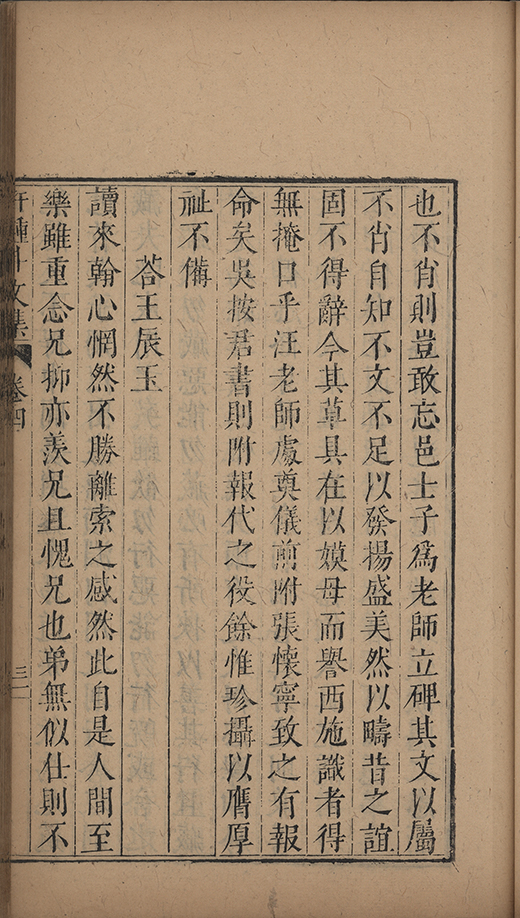 也不肖則豈敢忘邑士子爲老師立碑其文以屬
不肖自知不文不足以發揚盛美然以疇昔之誼
固不得辭今其草具在以嫫母而譽西施識者得
無掩口乎汪老師處奠儀前附張懷寧致之有報
命矣吳按君書則附報代之役餘惟珍攝以膺厚
祉不備
荅王辰玉
讀來翰心惘然不勝離索之感然此自是人間至
樂雖重念兄抑亦羨兄且愧兄也弟無似仕則不
文集 卷四